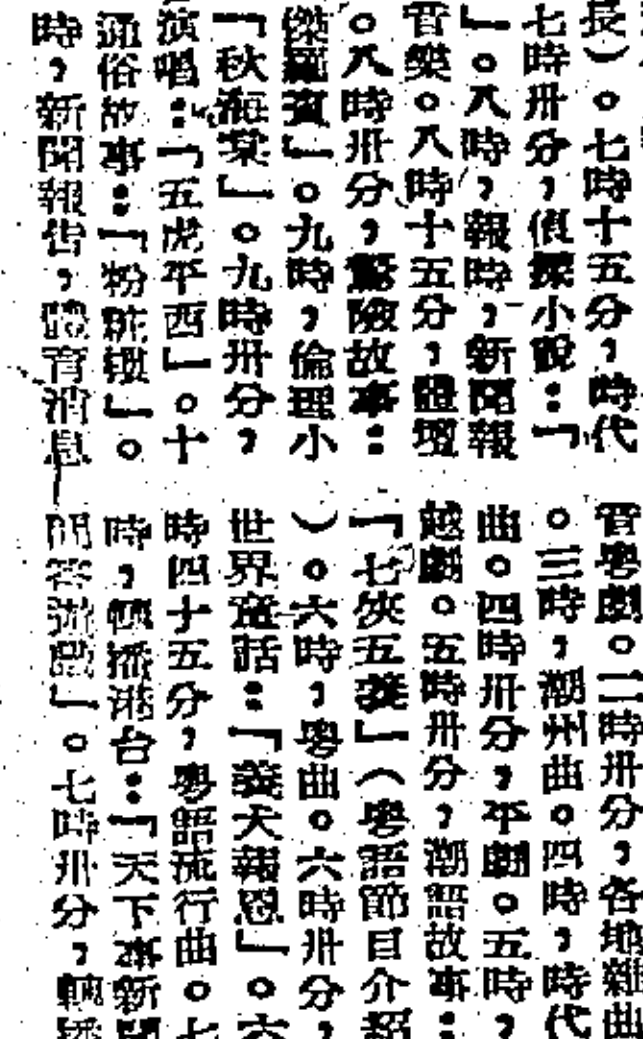 長）。七時十五分，時代
七時卅分，偵探小說：「
」。八時，報時，新聞報
音樂。八時十五分，體壇
。八時卅分，驚險故事：
傑羅賓」。九時，倫理小
「秋海棠」。九時卅分，
演唱：「五虎平西」。十
通俗故事：「粉粧樓」。
時，新聞報告，體育消息
音粵劇。二時卅分，各地雜曲
。三時，潮州曲。四時，時代
曲。四時卅分，平劇。五時，
越劇。五時卅分，潮語故事：
「七俠五義」（粵語節目介紹
）。六時，粵曲。六時卅分，
世界童話：「義犬報恩」。六
時四十五分，粵語流行曲。七
時，轉播港台：「天下事新聞
問答遊戲」。七時卅分，轉播